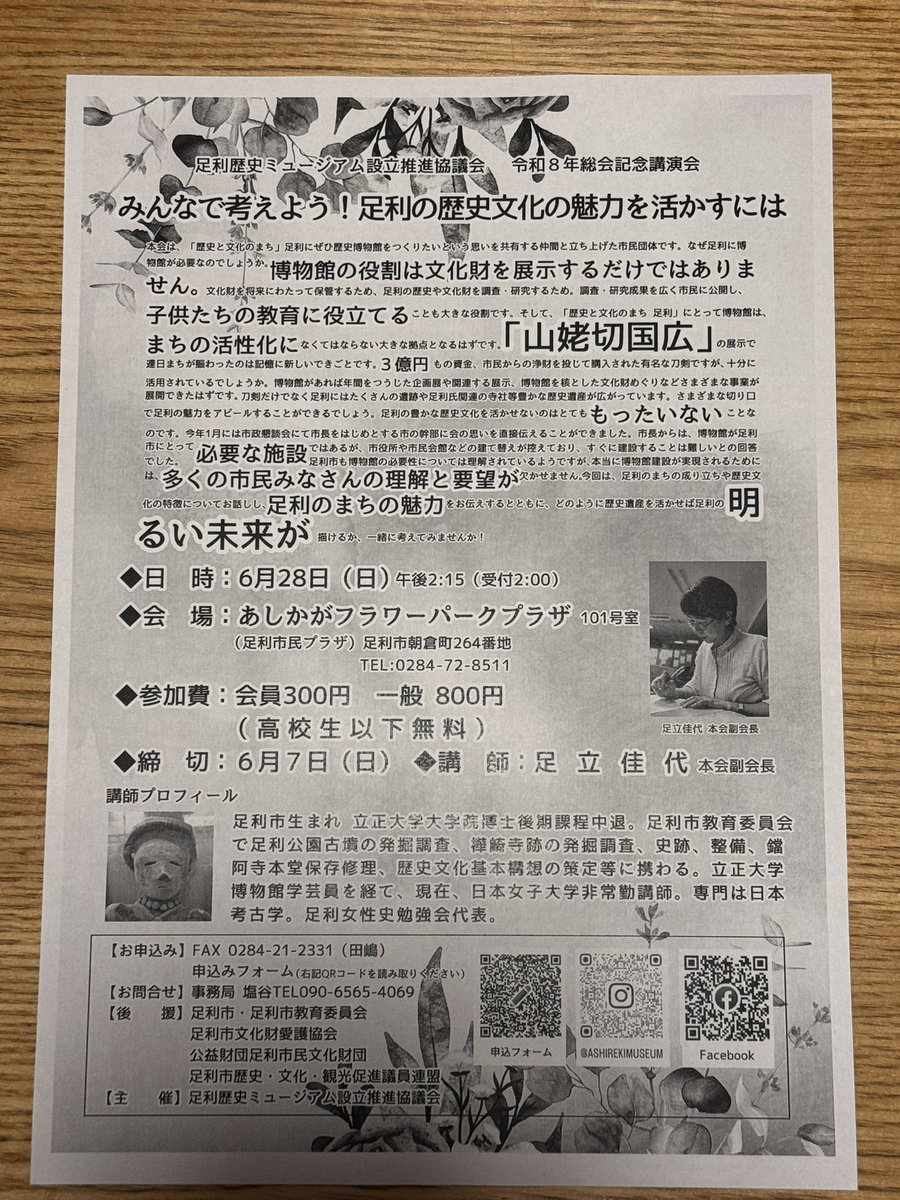 足利歴史ミュージアム設立推進協議会　令和８年総会記念講演会
みんなで考えよう！足利の歴史文化の魅力を活かすには
本会は、「歴史と文化のまち」足利にぜひ歴史博物館をつくりたいという思いを共有する仲間と立ち上げた市民団体です。なぜ足利に博
物館が必要なのでしょうか。博物館の役割は文化財を展示するだけではありま
せん。文化財を将来にわたって保管するため、足利の歴史や文化財を調査・研究するため。調査・研究成果を広く市民に公開し、
子供たちの教育に役立てることも大きな役割です。そして、「歴史と文化のまち 足利」にとって博物館は、
まちの活性化になくてはならない大きな拠点となるはずです。「山姥切国広」の展示で
連日まちが賑わったのは記憶に新しいできごとです。３億円もの資金、市民からの浄財を投じて購入された有名な刀剣ですが、十分に
活用されているでしょうか。博物館があれば年間をつうじた企画展や関連する展示、博物館を核とした文化財めぐりなどさまざまな事業が
展開できたはずです。刀剣だけでなく足利にはたくさんの遺跡や足利氏関連の寺社等豊かな歴史遺産が広がっています。さまざまな切り口
で足利の魅力をアピールすることができるでしょう。足利の豊かな歴史文化を活かせないのはとてももったいないことな
のです。今年1月には市政懇談会にて市長をはじめとする市の幹部に会の思いを直接伝えることができました。市長からは、博物館が足利
市にとって必要な施設ではあるが、市役所や市民会館などの建て替えが控えており、すぐに建設することは難しいとの回答
でした。足利市も博物館の必要性については理解されているようですが、本当に博物館建設が実現されるために
は、多くの市民みなさんの理解と要望が欠かせません。今回は、足利のまちの成り立ちや歴史文
化の特徴についてお話しし、足利のまちの魅力をお伝えするとともに、どのように歴史遺産を活かせば足利の明
るい未来が描けるか、一緒に考えてみませんか！
◆日　時：6月28日（日）午後2:15（受付2:00）
◆会　場：あしかがフラワーパークプラザ 101号室
（足利市民プラザ）足利市朝倉町264番地
TEL:0284-72-8511
◆参加費：会員300円　一般 800円
（高校生以下無料）
足立佳代 本会副会長
◆締　切：6月7日（日）　◆講　師：足 立 佳 代 本会副会長
講師プロフィール
足利市生まれ 立正大学大学院博士後期課程中退。足利市教育委員会
で足利公園古墳の発掘調査、樺崎寺跡の発掘調査、史跡、整備、鑁
阿寺本堂保存修理、歴史文化基本構想の策定等に携わる。立正大学
博物館学芸員を経て、現在、日本女子大学非常勤講師。専門は日本
考古学。足利女性史勉強会代表。
【お申込み】FAX 0284-21-2331（田嶋）
申込みフォーム(右記QRコードを読み取りください)
【お問合せ】事務局 塩谷TEL090-6565-4069
【後　援】足利市・足利市教育委員会
足利市文化財愛護協会
公益財団足利市民文化財団
足利市歴史・文化・観光促進議員連盟
【主　催】足利歴史ミュージアム設立推進協議会
申込フォーム
@ASHIREKIMUSEUM
Facebook